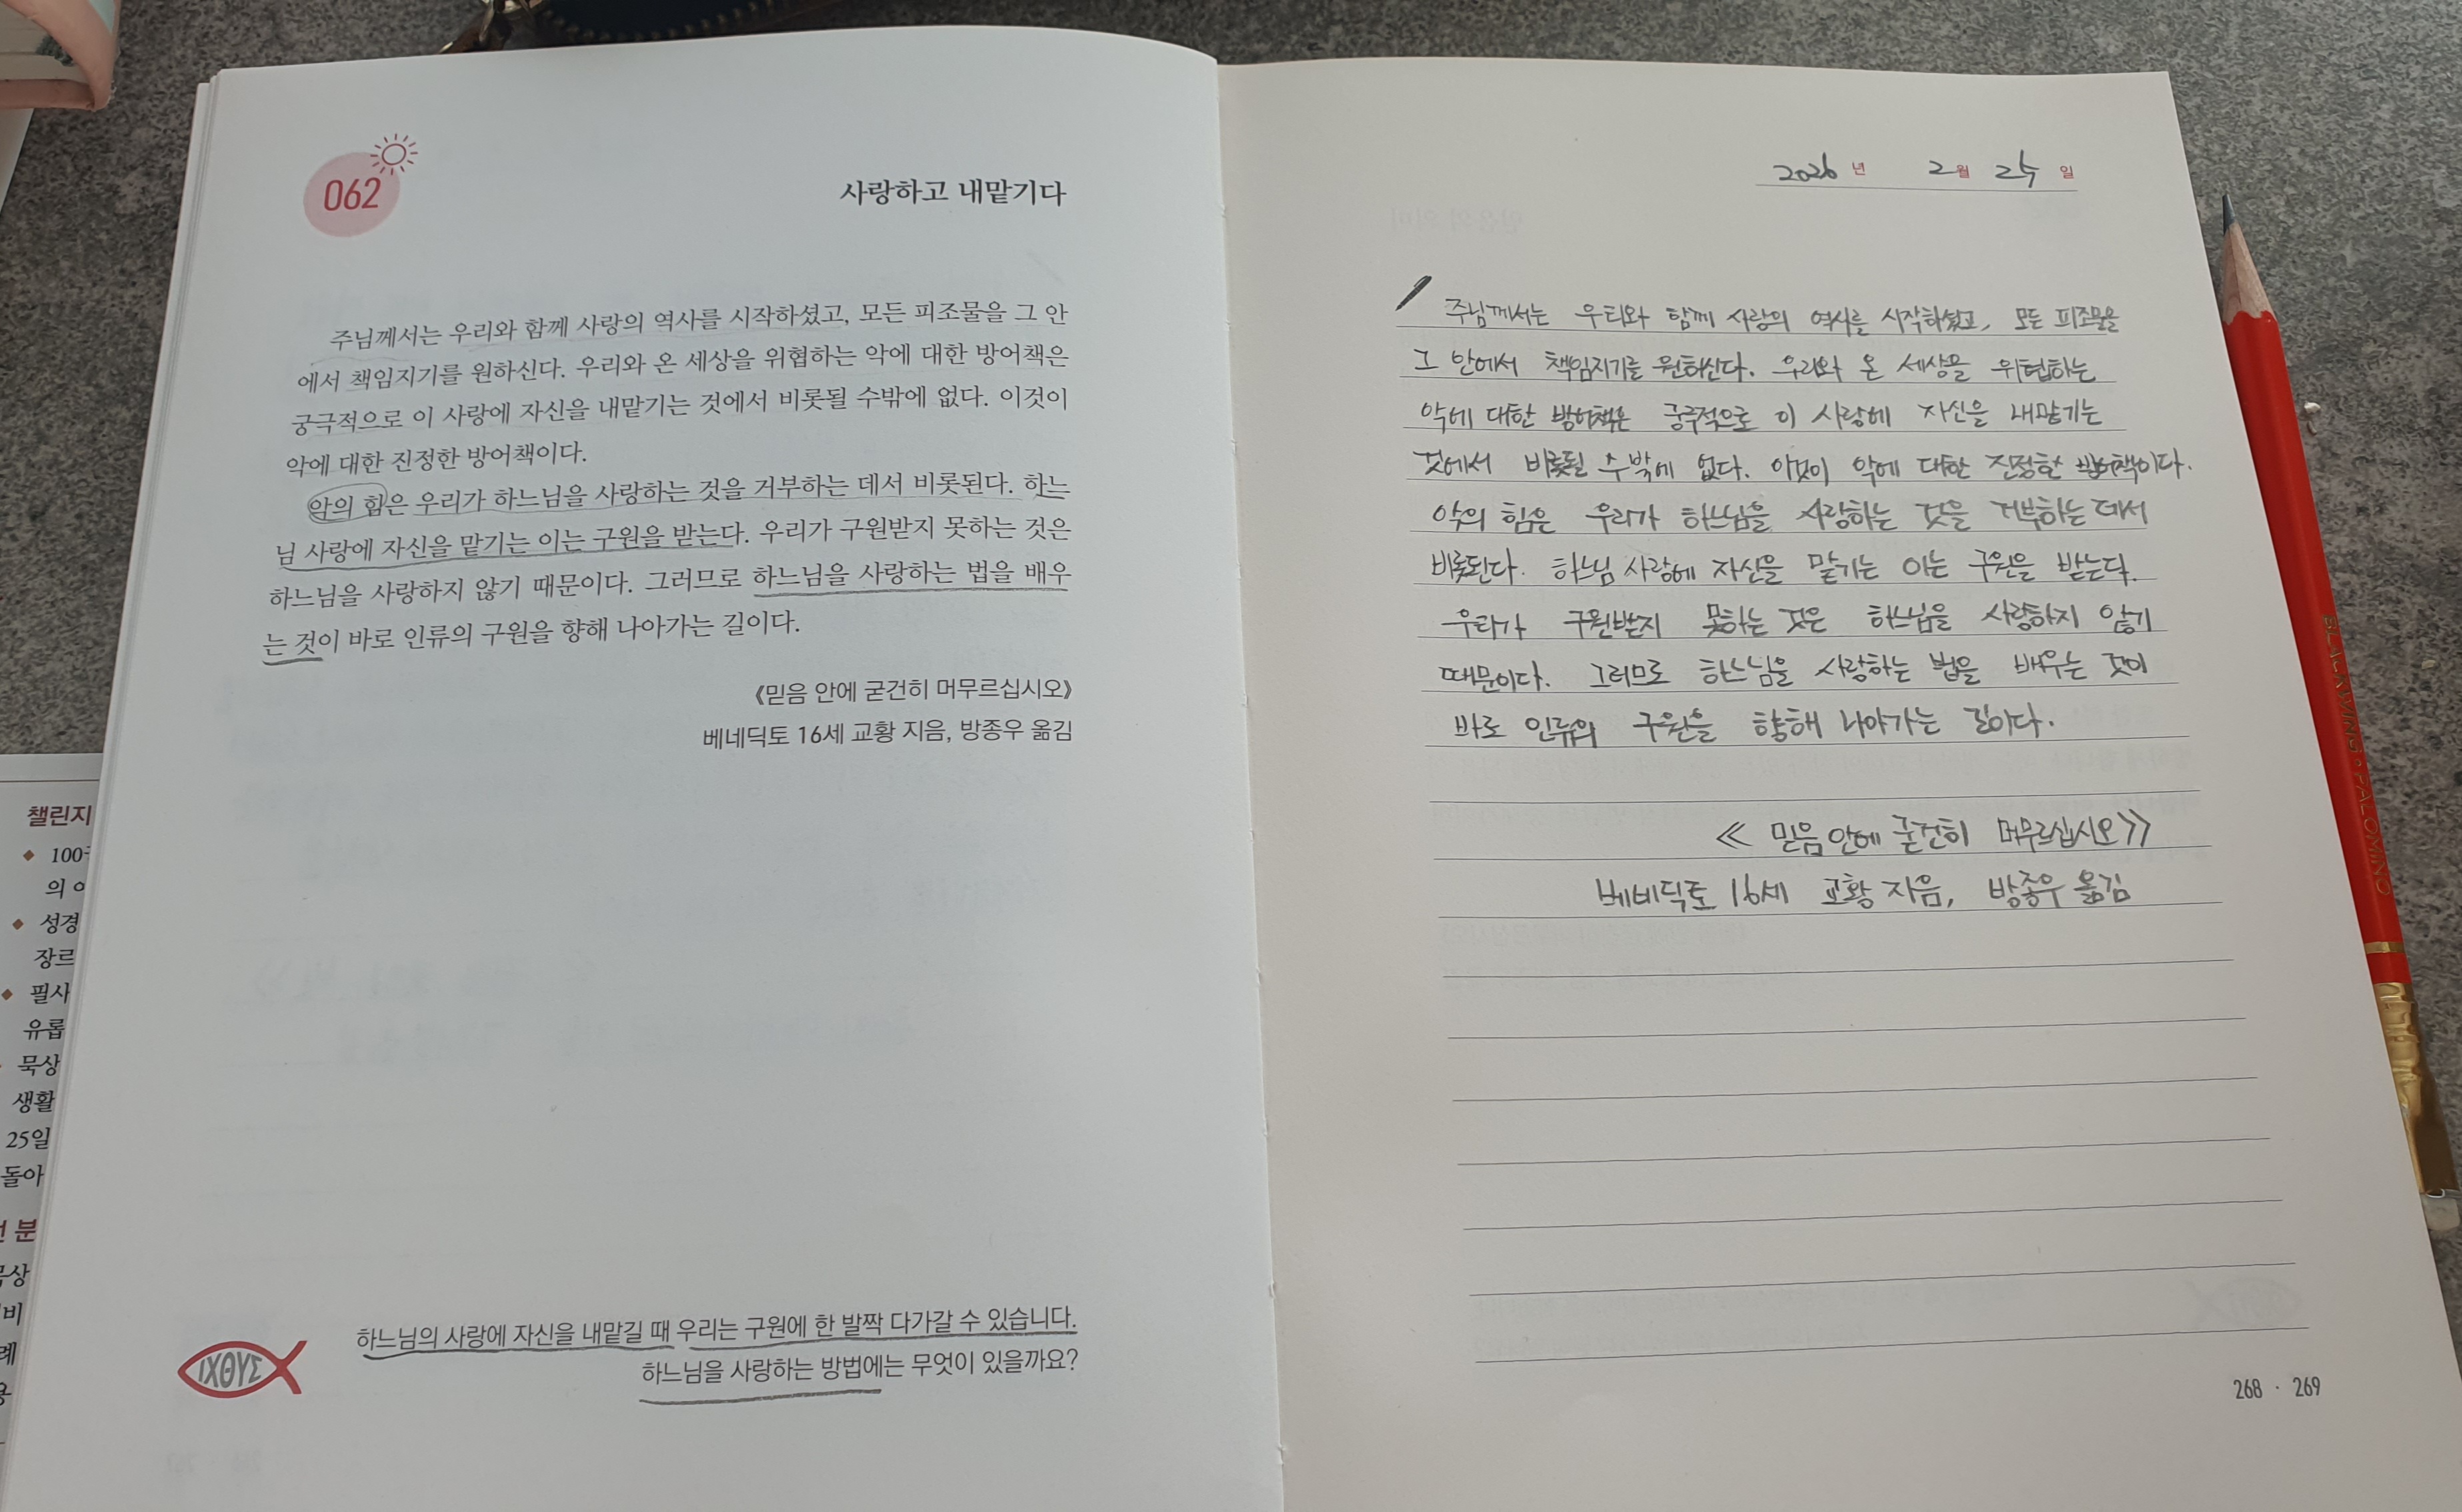 062
사랑하고 내맡기다
주님께서는 우리와 함께 사랑의 역사를 시작하셨고, 모든 피조물을 그 안
에서 책임지기를 원하신다. 우리와 온 세상을 위협하는 악에 대한 방어책은
궁극적으로 이 사랑에 자신을 내맡기는 것에서 비롯될 수밖에 없다. 이것이
악에 대한 진정한 방어책이다.
악의 힘은 우리가 하느님을 사랑하는 것을 거부하는 데서 비롯된다. 하느
님 사랑에 자신을 맡기는 이는 구원을 받는다. 우리가 구원받지 못하는 것은
하느님을 사랑하지 않기 때문이다. 그러므로 하느님을 사랑하는 법을 배우
는 것이 바로 인류의 구원을 향해 나아가는 길이다.
《믿음 안에 굳건히 머무르십시오》
베네딕토 16세 교황 지음, 방종우 옮김
하느님의 사랑에 자신을 내맡길 때 우리는 구원에 한 발짝 다가갈 수 있습니다.
하느님을 사랑하는 방법에는 무엇이 있을까요?
ΙΧΘΥΣ
챌린지
100
의
성경
장르
필사
유럽
묵상
생활
25일
돌아
분
묵상
비
례
2026 년 2월 24 일
주님께서는 우리와 함께 사랑의 역사를 시작하셨고, 모든 피조물을
그 안에서 책임지기를 원하신다. 우리와 온 세상을 위협하는
악에 대한 방어책은 궁극적으로 이 사랑에 자신을 내맡기는
것에서 비롯될 수밖에 없다. 이것이 악에 대한 진정한 방어책이다.
악의 힘은 우리가 하느님을 사랑하는 것을 거부하는 데서
비롯된다. 하느님 사랑에 자신을 맡기는 이는 구원을 받는다.
우리가 구원받지 못하는 것은 하느님을 사랑하지 않기
때문이다. 그러므로 하느님을 사랑하는 법을 배우는 것이
바로 인류의 구원을 향해 나아가는 길이다.
≪ 믿음 안에 굳건히 머무르십시오≫
베네딕토 16세 교황 지음, 방종우 옮김
268 · 269
BLACKWING PALOMINO